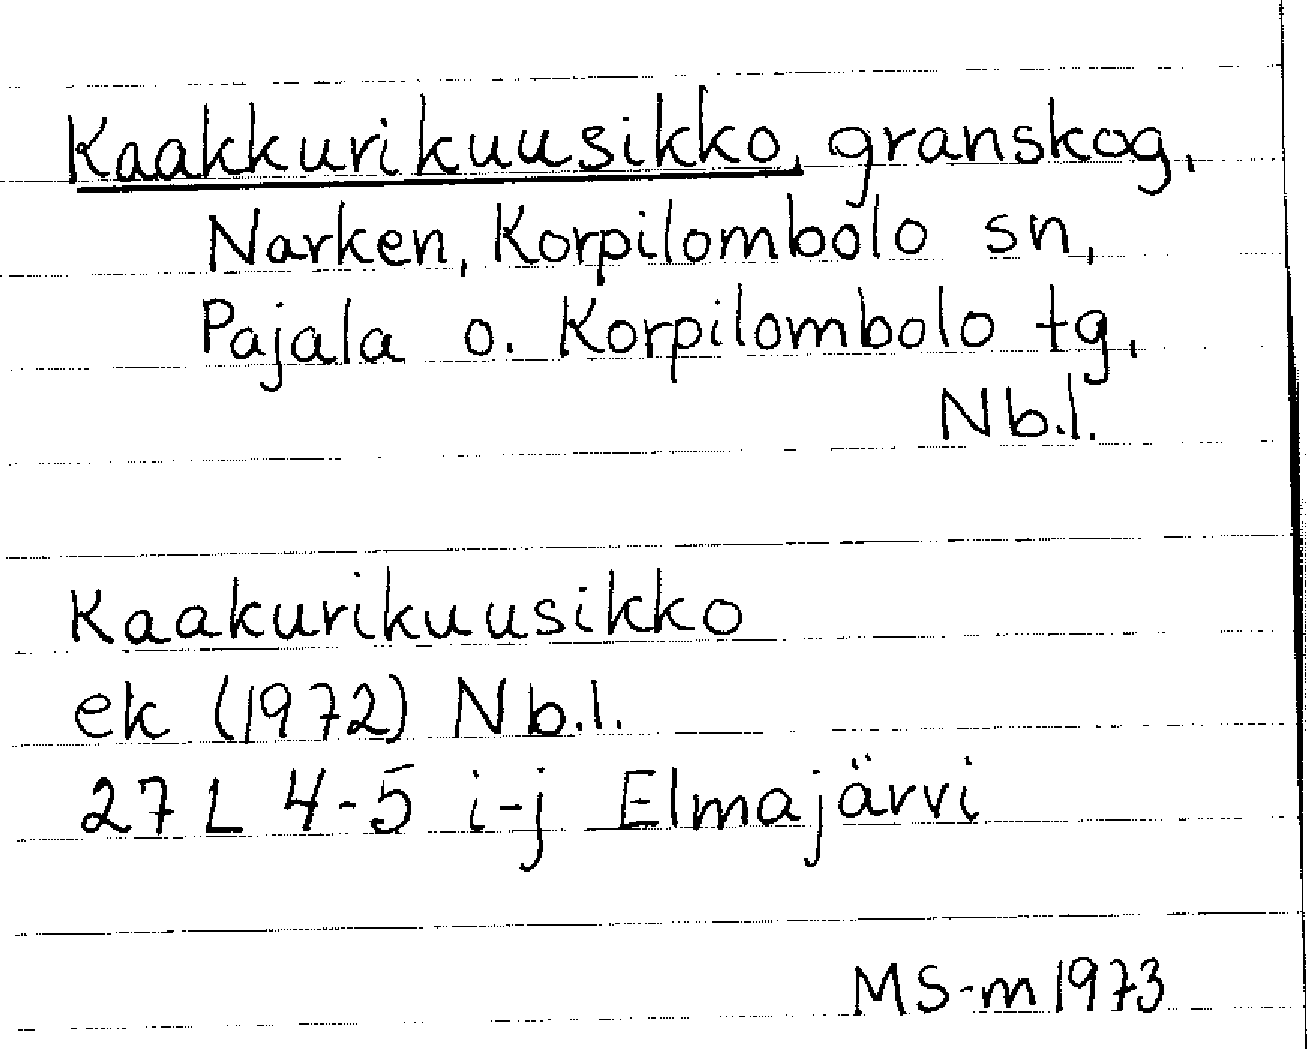 Kaakkurikuusikko, granskog,
Narken, Korpilombolo sn,
Pajala o. Korpilombolo tg,
Nb.l.
Kaakurikuusikko
ek (1972) Nb.l.
27 L 4-5 i-j Elmajärvi
MS-m 1973